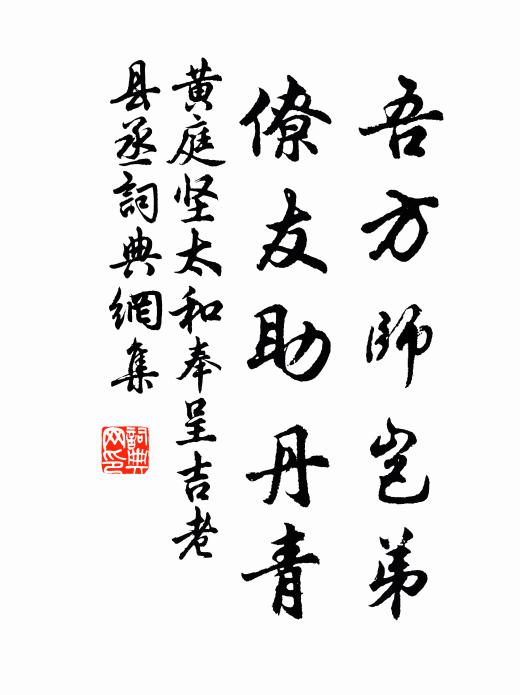 吾方師岂弟
僚友助丹青
黄庭坚太和奉呈吉老
县丞詞典網集
詞典网印